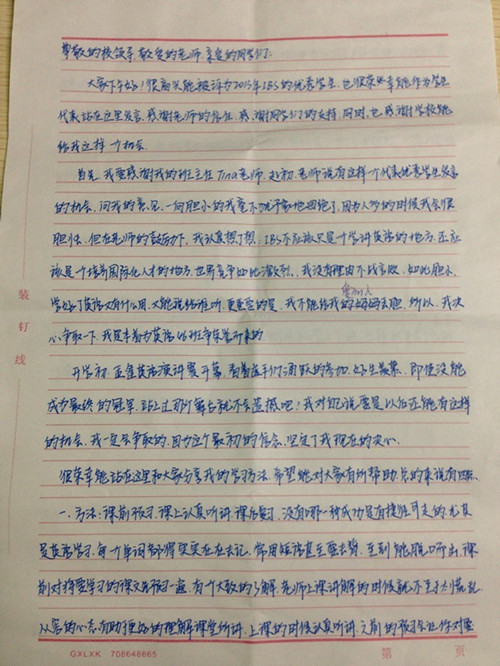 尊敬的校领导,敬爱的老师,亲爱的同学们:
大家下午好!很高兴能被评为2015年IBS的优秀学生,也很荣幸能作为学生
代表站在这里发言,感谢老师的信任,感谢同学们的支持,同时,也感谢学校能
给我这样一个机会。
首先,我要感谢我的班主任Tina老师,起初,老师说有这样一个代表优秀学生发言
的机会,问我的意见,一向胆小的我毫不犹豫地回绝了,因为人多的时候我会很
胆怯,但在老师的鼓励下,我认真想了想:IBS不应该只是个学讲英语的地方,还应
该是个培养国际化人才的地方,世界竞争如此激烈,我没有理由不战言败,如此胆小,
学好了英语又有什么用,又能说给谁听,更重要的是,我不能给我的
妈妈丢脸,所以,我决
心争取一下,我是本着为英语46班争荣誉而来的
开学初,正值英语演讲赛开幕,看着孩子们踊跃的参加,好生羡慕,即使没能
成为最终的冠军,站上过那个舞台就不会遗憾吧!我对自己说要是以后还能有这样
的机会,我一定会争取的,因为这个最初的信念,坚定了我现在的决心。
很荣幸能站在这里和大家分享我的学习方法,希望能对大家有所帮助,总的来说有四点
一.方法:课前预习,课上认真听讲,课后复习,没有哪一种成功是有捷径可走的,尤其
是英语学习,每个单词都得实实在在去记,常用短语甚至要去背,至到能脱口而出,课
前对将要学习的课文先预习一遍,有个大致的了解,老师上课讲解的时候就不至于慌乱,
从容的心态有助于更好的理解课堂所讲,上课的时候认真听讲,之前的预习会让你对要
装
订
线
GXLXK 708648665
第 页